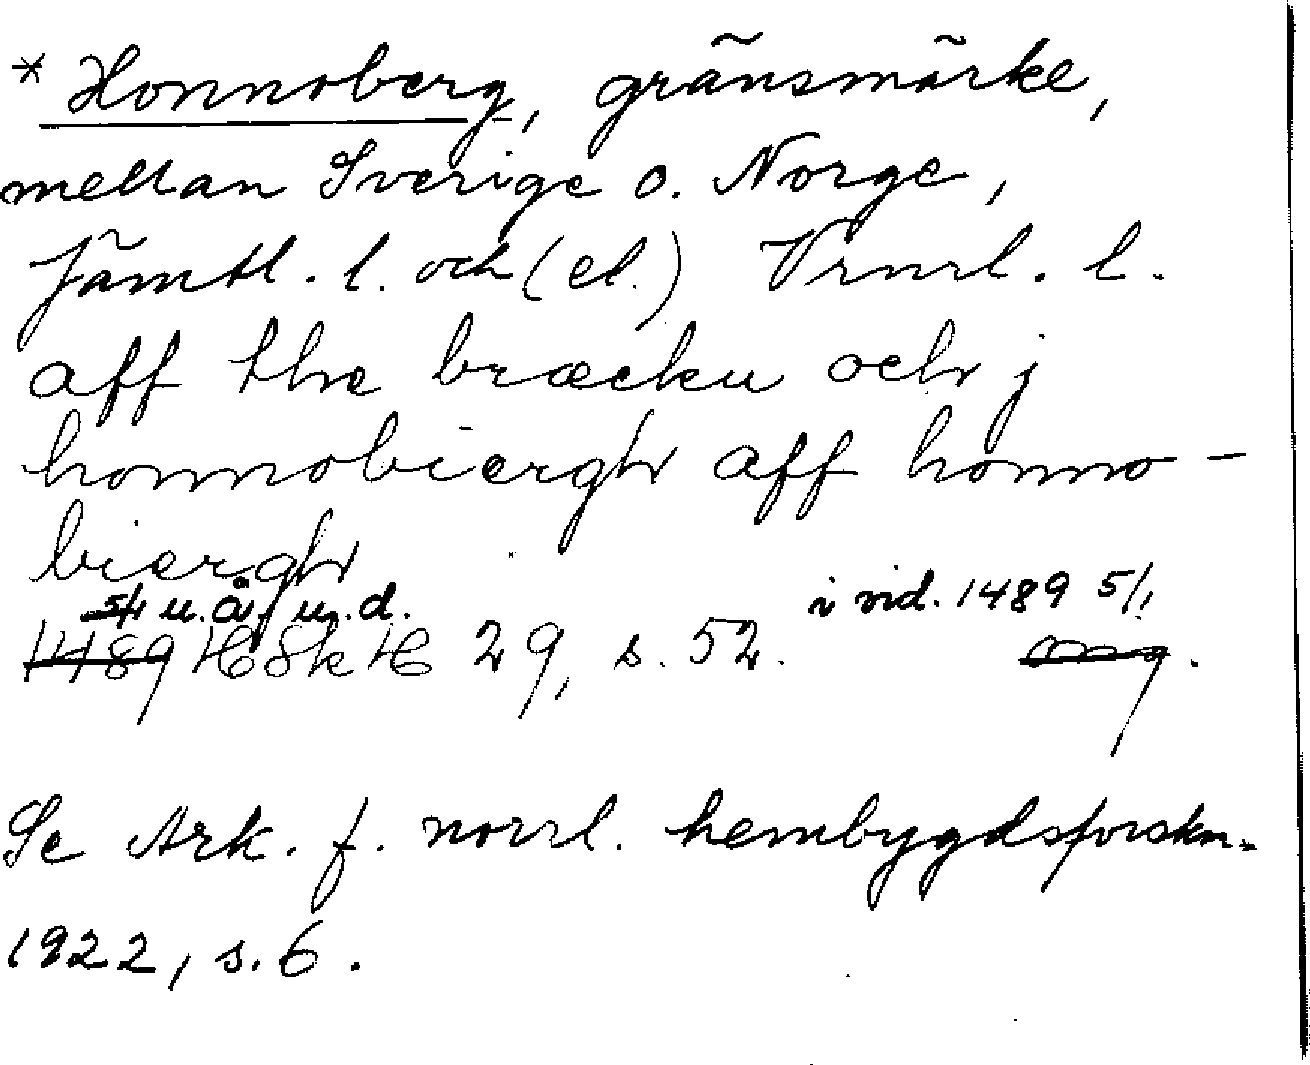 * Honnoberg, gränsmärke,
mellan Sverige o. Norge,
Jämtl. l. och (el.) Vrml. l.
aff the bræcku och j
honnobiergh aff honno-
biergh
5/1 u.å. u.d. i vid. 1489 5/1
1489 HSkH 29, s. 52.
Se Ark. f. norrl. hembygdsforskn.
1922, s. 6.